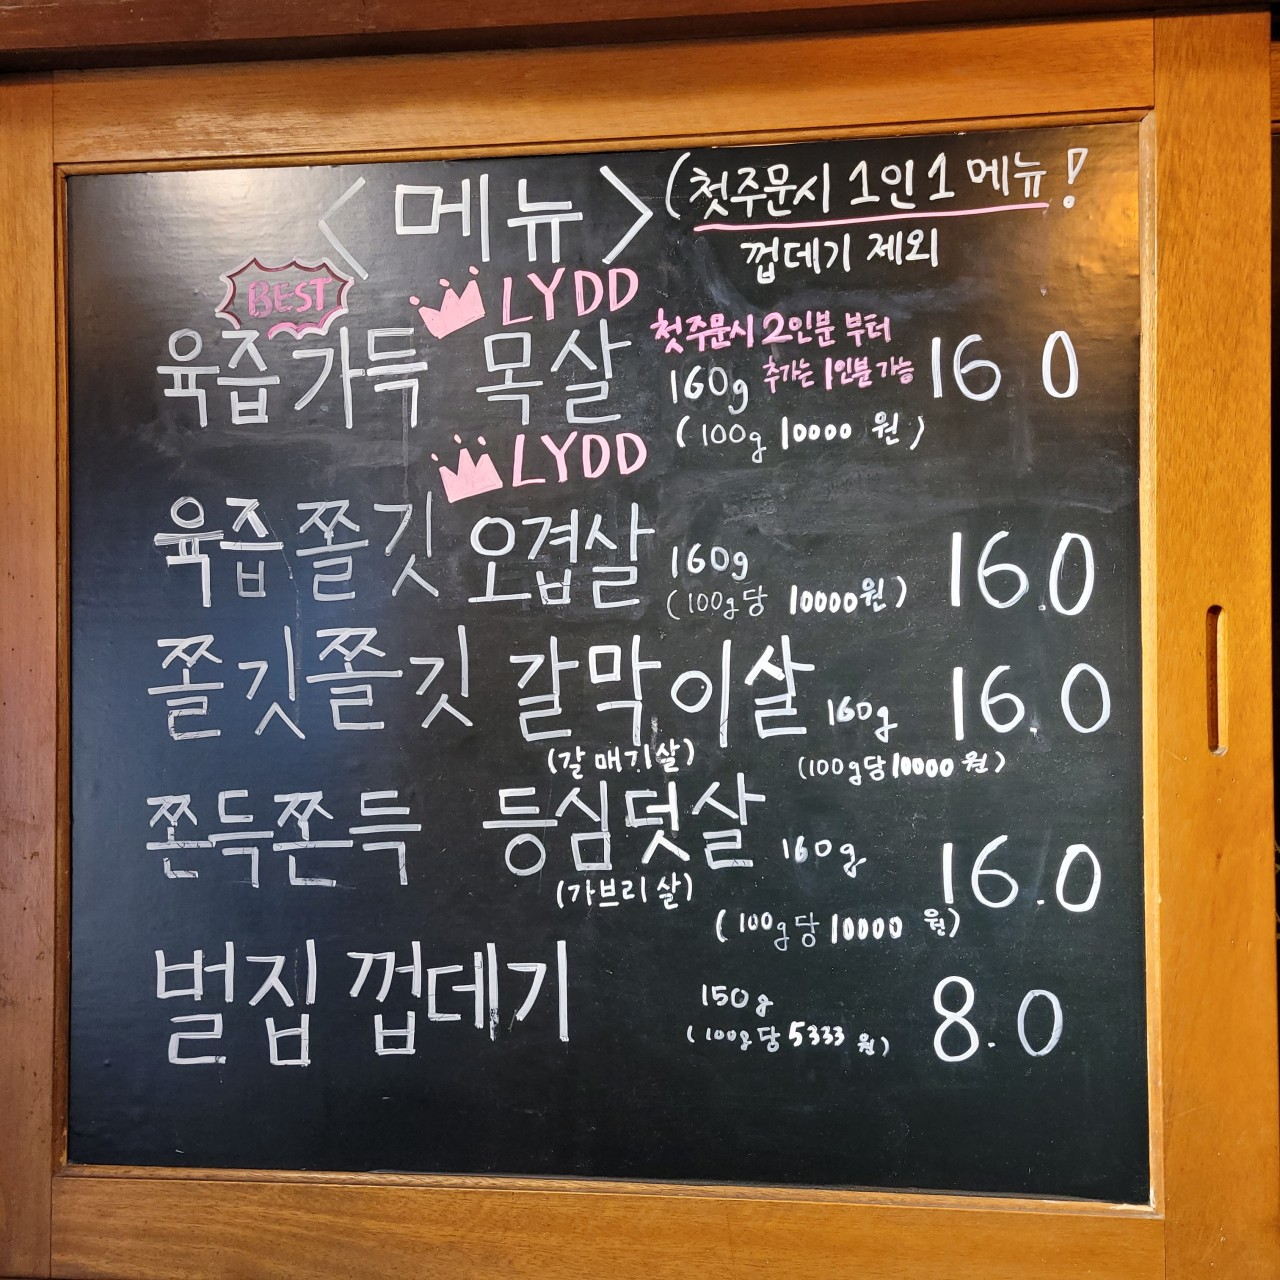 <메뉴> (첫주문시 1인 1 메뉴!
껍데기 제외
BEST LYDD
육즙가득 목살 160g 16 0
첫주문시 2인분 부터
추가는 1인분 가능
(100g 10000 원)
LYDD
육즙쫄깃 오겹살 160g 16.0
(100g당 10000원)
쫄깃쫄깃 갈막이살 160g 16.0
(갈매기살) (100g당 10000 원)
쫀득쫀득 등심덧살 160g 16.0
(가브리살) (100g당 10000 원)
벌집 껍데기 150g 8.0
(100g당 5333 원)